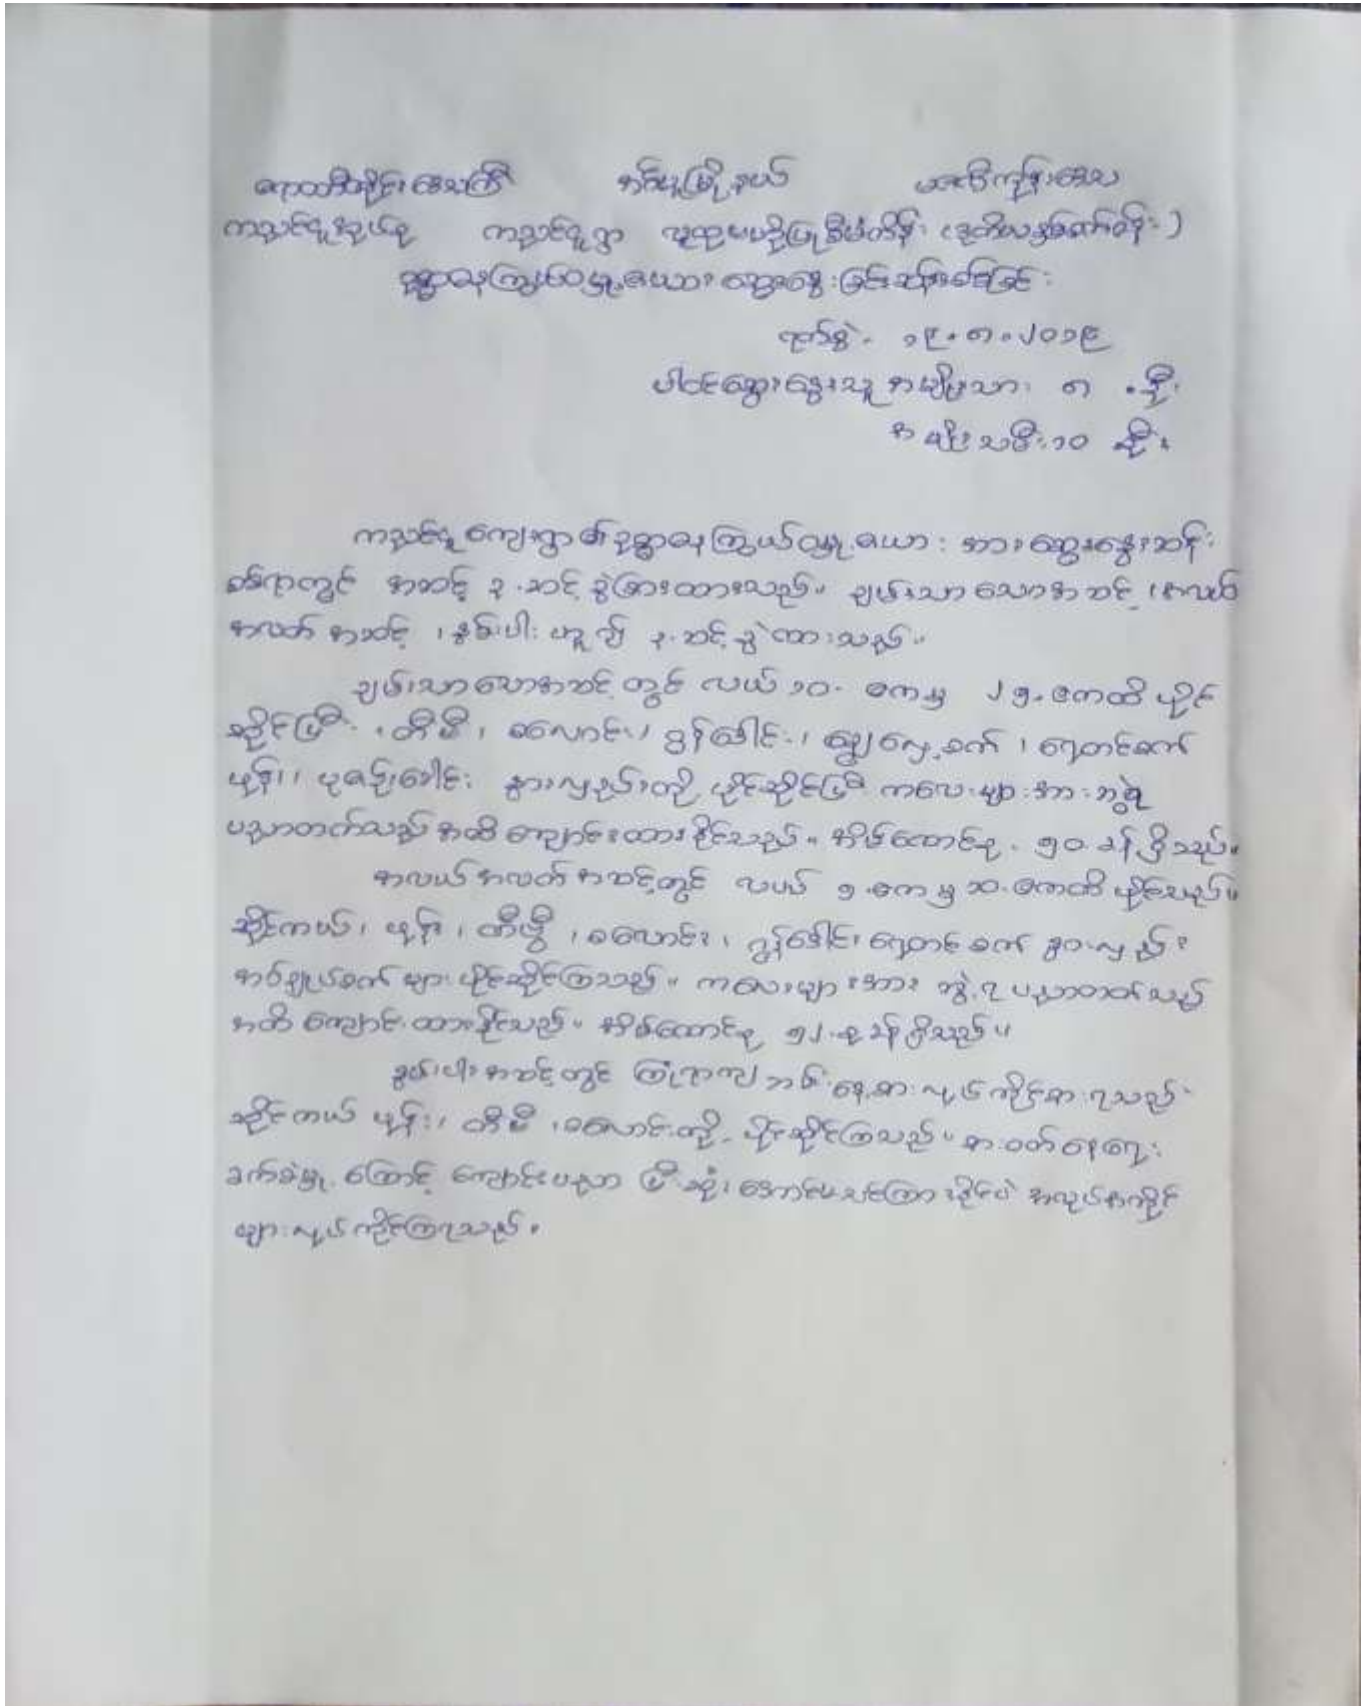 ဧရာဝတီတိုင်းဒေသကြီး အင်္ဂပူမြို့နယ် မအူပင်ကျွန်းဒေသ
ကညင်ငူအုပ်စု ကညင်ငူရွာ လူထုဗဟိုပြုစီမံကိန်း (ဒုတိယနှစ်စက်ဝန်း)
ဥစ္စာဓနကြွယ်ဝမှုဇယား ဆွေးနွေးခြင်းဆန်းစစ်ခြင်း
ရက်စွဲ- ၁၉.၈.၂၀၁၉
ပါဝင်ဆွေးနွေးသူ အမျိုးသား ၈ ဦး
အမျိုးသမီး ၁၀ ဦး
ကညင်ငူ ကျေးရွာ၏ ဥစ္စာဓနကြွယ်ဝမှုဇယား အားဆွေးနွေးဆန်း
စစ်ရာတွင် အဆင့် ၃ ဆင့် ခွဲခြားထားသည်။ ချမ်းသာသောအဆင့်၊ အလယ်
အလတ်အဆင့်၊ နွမ်းပါး ဟူ၍ ၃ ဆင့် ခွဲထားသည်။
ချမ်းသာသောအဆင့်တွင် လယ် ၁၀ ဧကမှ ၂၅ ဧကထိ ပိုင်
ဆိုင်ပြီး၊ တီဗီ၊ စလောင်း၊ ထွန်ဒေါင်း၊ ချွေလှေ့စက်၊ ရေတင်စက်
ဖုန်း၊ ပုဇဉ်းဒေါင်း နွားလှည်းတို့ ပိုင်ဆိုင်ပြီး ကလေးများအား ဘွဲ့ရ
ပညာတတ်သည်အထိ ကျောင်းထားနိုင်သည်။ အိမ်ထောင်စု ၅၀ ခန့်ရှိသည်။
အလယ်အလတ်အဆင့်တွင် လယ် ၅ ဧကမှ ၁၀ ဧကထိ ပိုင်သည်။
ဆိုင်ကယ်၊ ဖုန်း၊ တီဗွီ၊ စလောင်း၊ ထွန်ဒေါင်း၊ ရေတင်စက် နွားလှည်း
အပ်ချုပ်စက်များ ပိုင်ဆိုင်ကြသည်။ ကလေးများအား ဘွဲ့ရ ပညာတတ်သည်
အထိ ကျောင်းထားနိုင်သည်။ အိမ်ထောင်စု ၅၂ စုခန့်ရှိသည်။
နွမ်းပါးအဆင့်တွင် ကြုံရာကျဘမ်း နေ့စား လုပ်ကိုင်စားရသည်
ဆိုင်ကယ် ဖုန်း၊ တီဗီ၊ စလောင်းတို့ ပိုင်ဆိုင်ကြသည်။ စားဝတ်နေရေး
ခက်ခဲမှုကြောင့် ကျောင်းပညာ ပြီးဆုံးအောင်မသင်ကြားနိုင်ပဲ အလုပ်အကိုင်
များ လုပ်ကိုင်ကြရသည်။